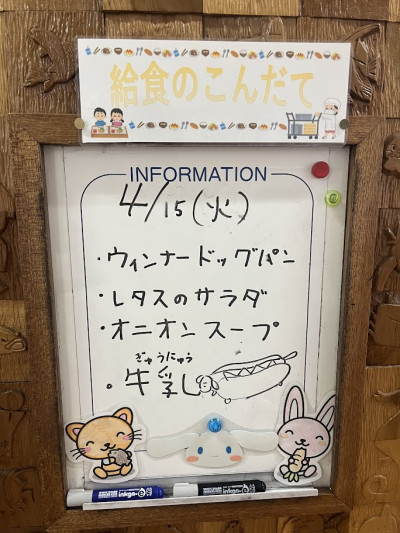 給食のこんだて
INFORMATION
4/15(火)
・ウィンナードッグパン
・レタスのサラダ
・オニオンスープ
ぎゅうにゅう
・牛乳
inkga-e
inkga-e